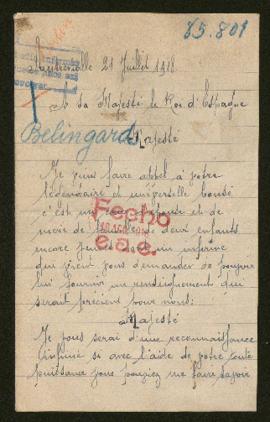 85.801
21 Juillet 1918
A sa Majesté le Roi d'Espagne
Belingard
Majesté
Je viens faire appel à votre
légendaire et universelle bonté
c'est un et de
mère de famille de deux enfants
encore jeunes
qui vient vous demander de pouvoir
lui fournir un renseignement qui
serait précieux pour nous:
Fecho
e.a.e.
Majesté
Je vous serai d'une reconnaissance
infinie si avec l'aide de votre toute
puissance vous pouviez me faire savoir